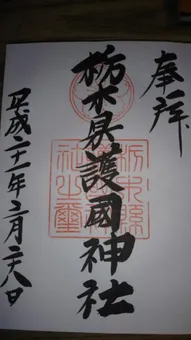 奉拝
栃木県護國神社
平成二十一年二月二十八日
栃木縣
護國神
社之璽